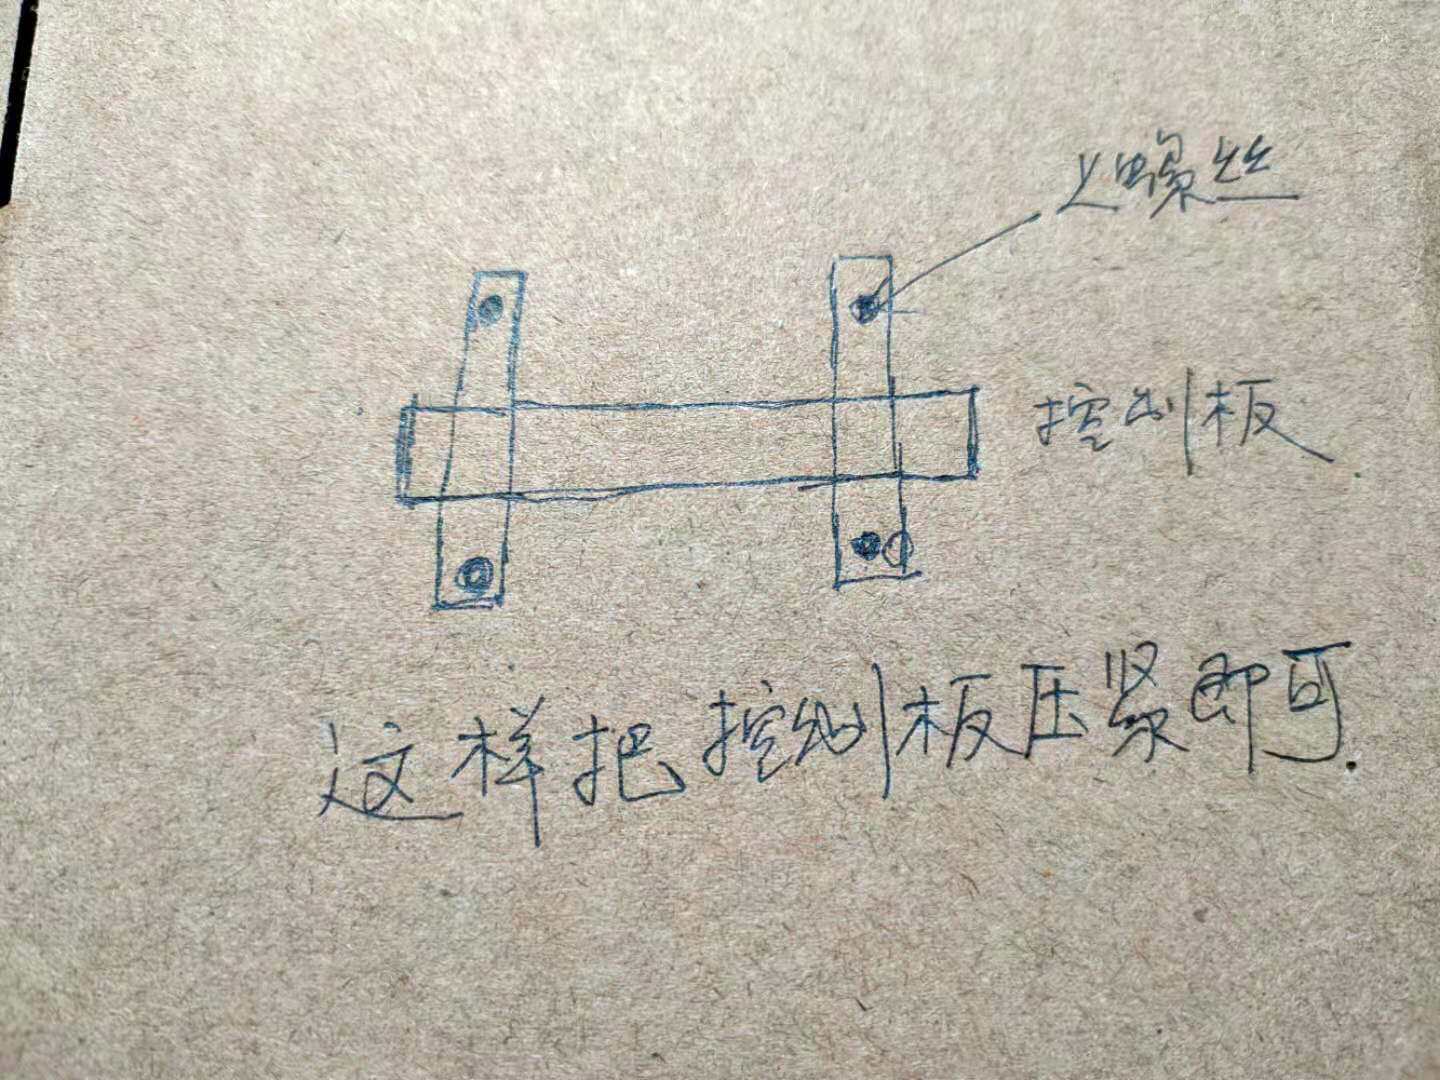 螺丝
控制板
这样把控制板压紧即可.